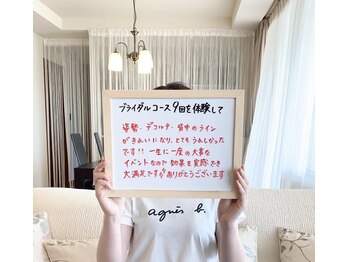 ブライダルコース9回を体験して
姿勢、デコルテ、背中のライン
がきれいになり、とてもうれしかった
です!! 一生に一度の大事な
イベントなので効果を実感でき
大満足です ありがとうございます
agnès b.